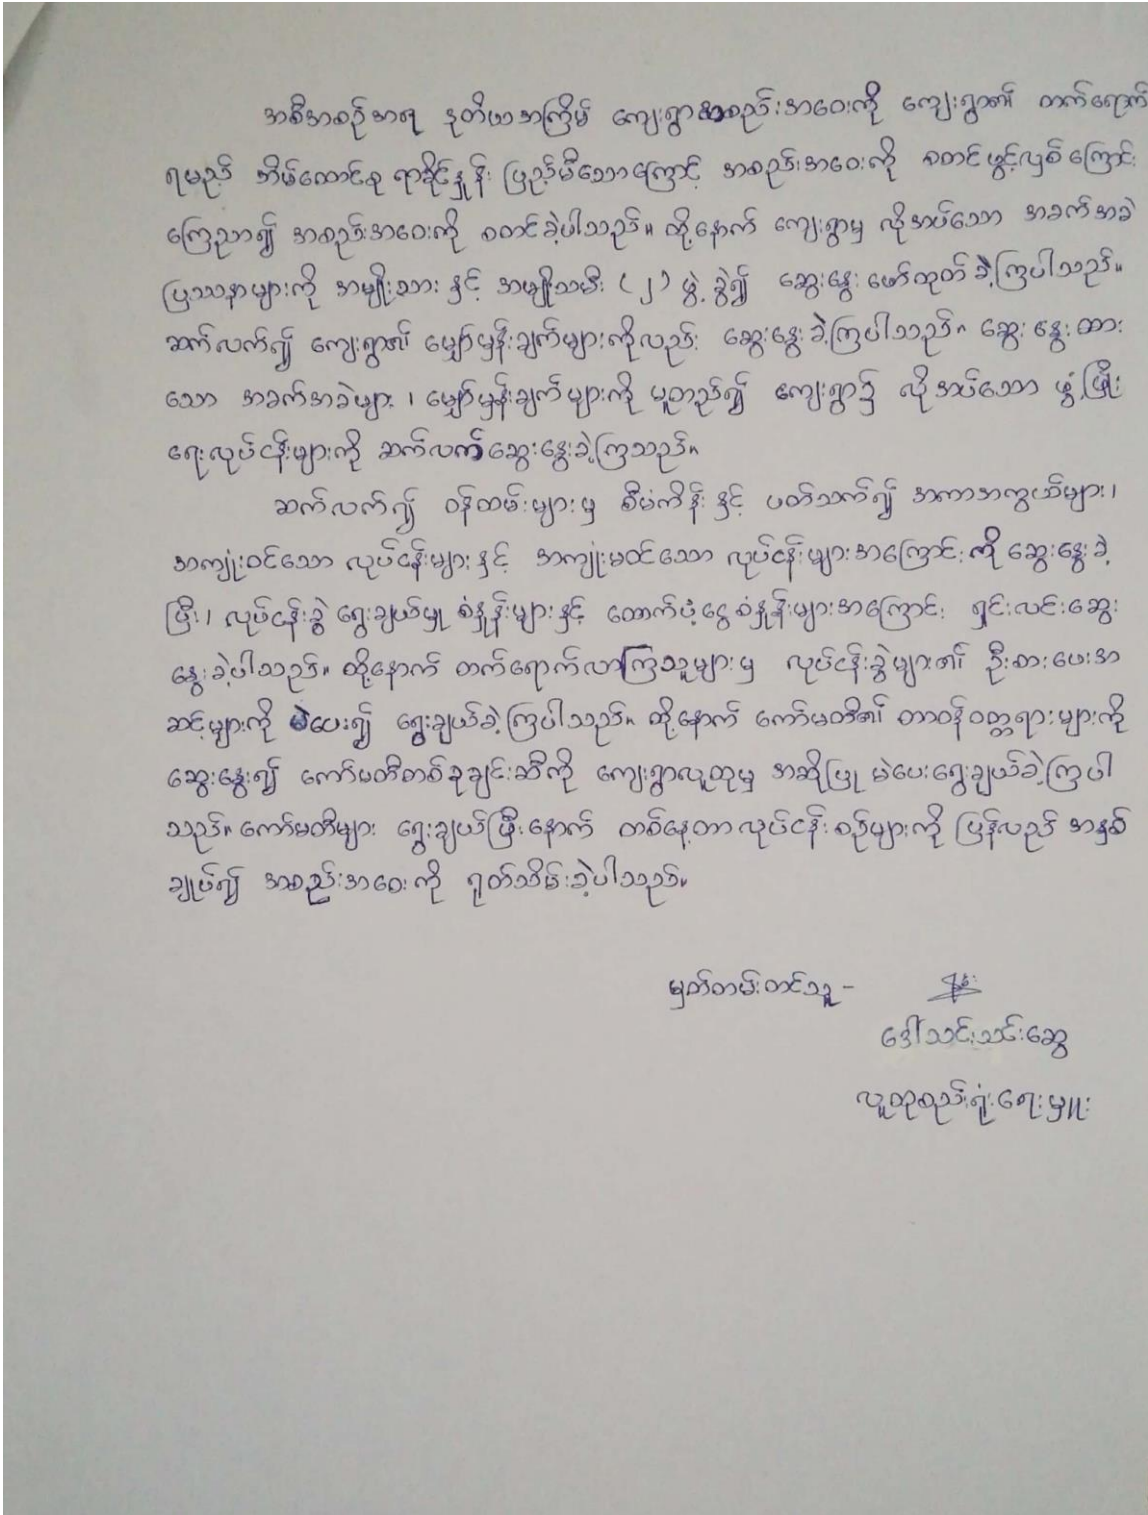 အစီအစဉ်အရ ဒုတိယအကြိမ် ကျေးရွာအစည်းအဝေးကို ကျေးရွာ၏ တက်ရောက်
ရမည့် အိမ်ထောင်စု ရာခိုင်နှုန်း ပြည့်မီသောကြောင့် အစည်းအဝေးကို စတင်ဖွင့်လှစ်ကြောင်း
ကြေညာ၍ အစည်းအဝေးကို စတင်ခဲ့ပါသည်။ ထို့နောက် ကျေးရွာမှ လိုအပ်သော အခက်အခဲ
ပြဿနာများကို အမျိုးသား နှင့် အမျိုးသမီး (၂) ဖွဲ့ ခွဲ၍ ဆွေးနွေး ဖော်ထုတ်ခဲ့ကြပါသည်။
ဆက်လက်၍ ကျေးရွာ၏ မျှော်မှန်းချက်များကိုလည်း ဆွေးနွေးခဲ့ကြပါသည်။ ဆွေးနွေးထား
သော အခက်အခဲများ၊ မျှော်မှန်းချက်များကို မူတည်၍ ကျေးရွာ၌ လိုအပ်သော ဖွံ့ဖြိုး
ရေးလုပ်ငန်းများကို ဆက်လက်ဆွေးနွေးခဲ့ကြသည်။
ဆက်လက်၍ ဝန်ထမ်းများမှ စီမံကိန်း နှင့် ပတ်သက်၍ အကာအကွယ်များ၊
အကျုံးဝင်သော လုပ်ငန်းများ နှင့် အကျုံးမဝင်သော လုပ်ငန်းများအကြောင်းကို ဆွေးနွေးခဲ့
ပြီး၊ လုပ်ငန်းခွဲ ရွေးချယ်မှု စံနှုန်းများနှင့် ထောက်ပံ့ငွေစံနှုန်းများအကြောင်း ရှင်းလင်းဆွေး
နွေးခဲ့ပါသည်။ ထို့နောက် တက်ရောက်လာကြသူများမှ လုပ်ငန်းခွဲများ၏ ဦးစားပေးအ
ဆင့်များကို မဲပေး၍ ရွေးချယ်ခဲ့ကြပါသည်။ ထို့နောက် ကော်မတီ၏ တာဝန်ဝတ္တရားများကို
ဆွေးနွေး၍ ကော်မတီတစ်ခုချင်းဆီကို ကျေးရွာလူထုမှ အဆိုပြု မဲပေးရွေးချယ်ခဲ့ကြပါ
သည်။ ကော်မတီများ ရွေးချယ်ပြီးနောက် တစ်နေ့တာလုပ်ငန်းစဉ်များကို ပြန်လည် အနှစ်
ချုပ်၍ အစည်းအဝေးကို ရုတ်သိမ်းခဲ့ပါသည်။
မှတ်တမ်းတင်သူ -
ဒေါ်သင်းသင်းဆွေ
လူထုစည်းရုံးရေးမှူး